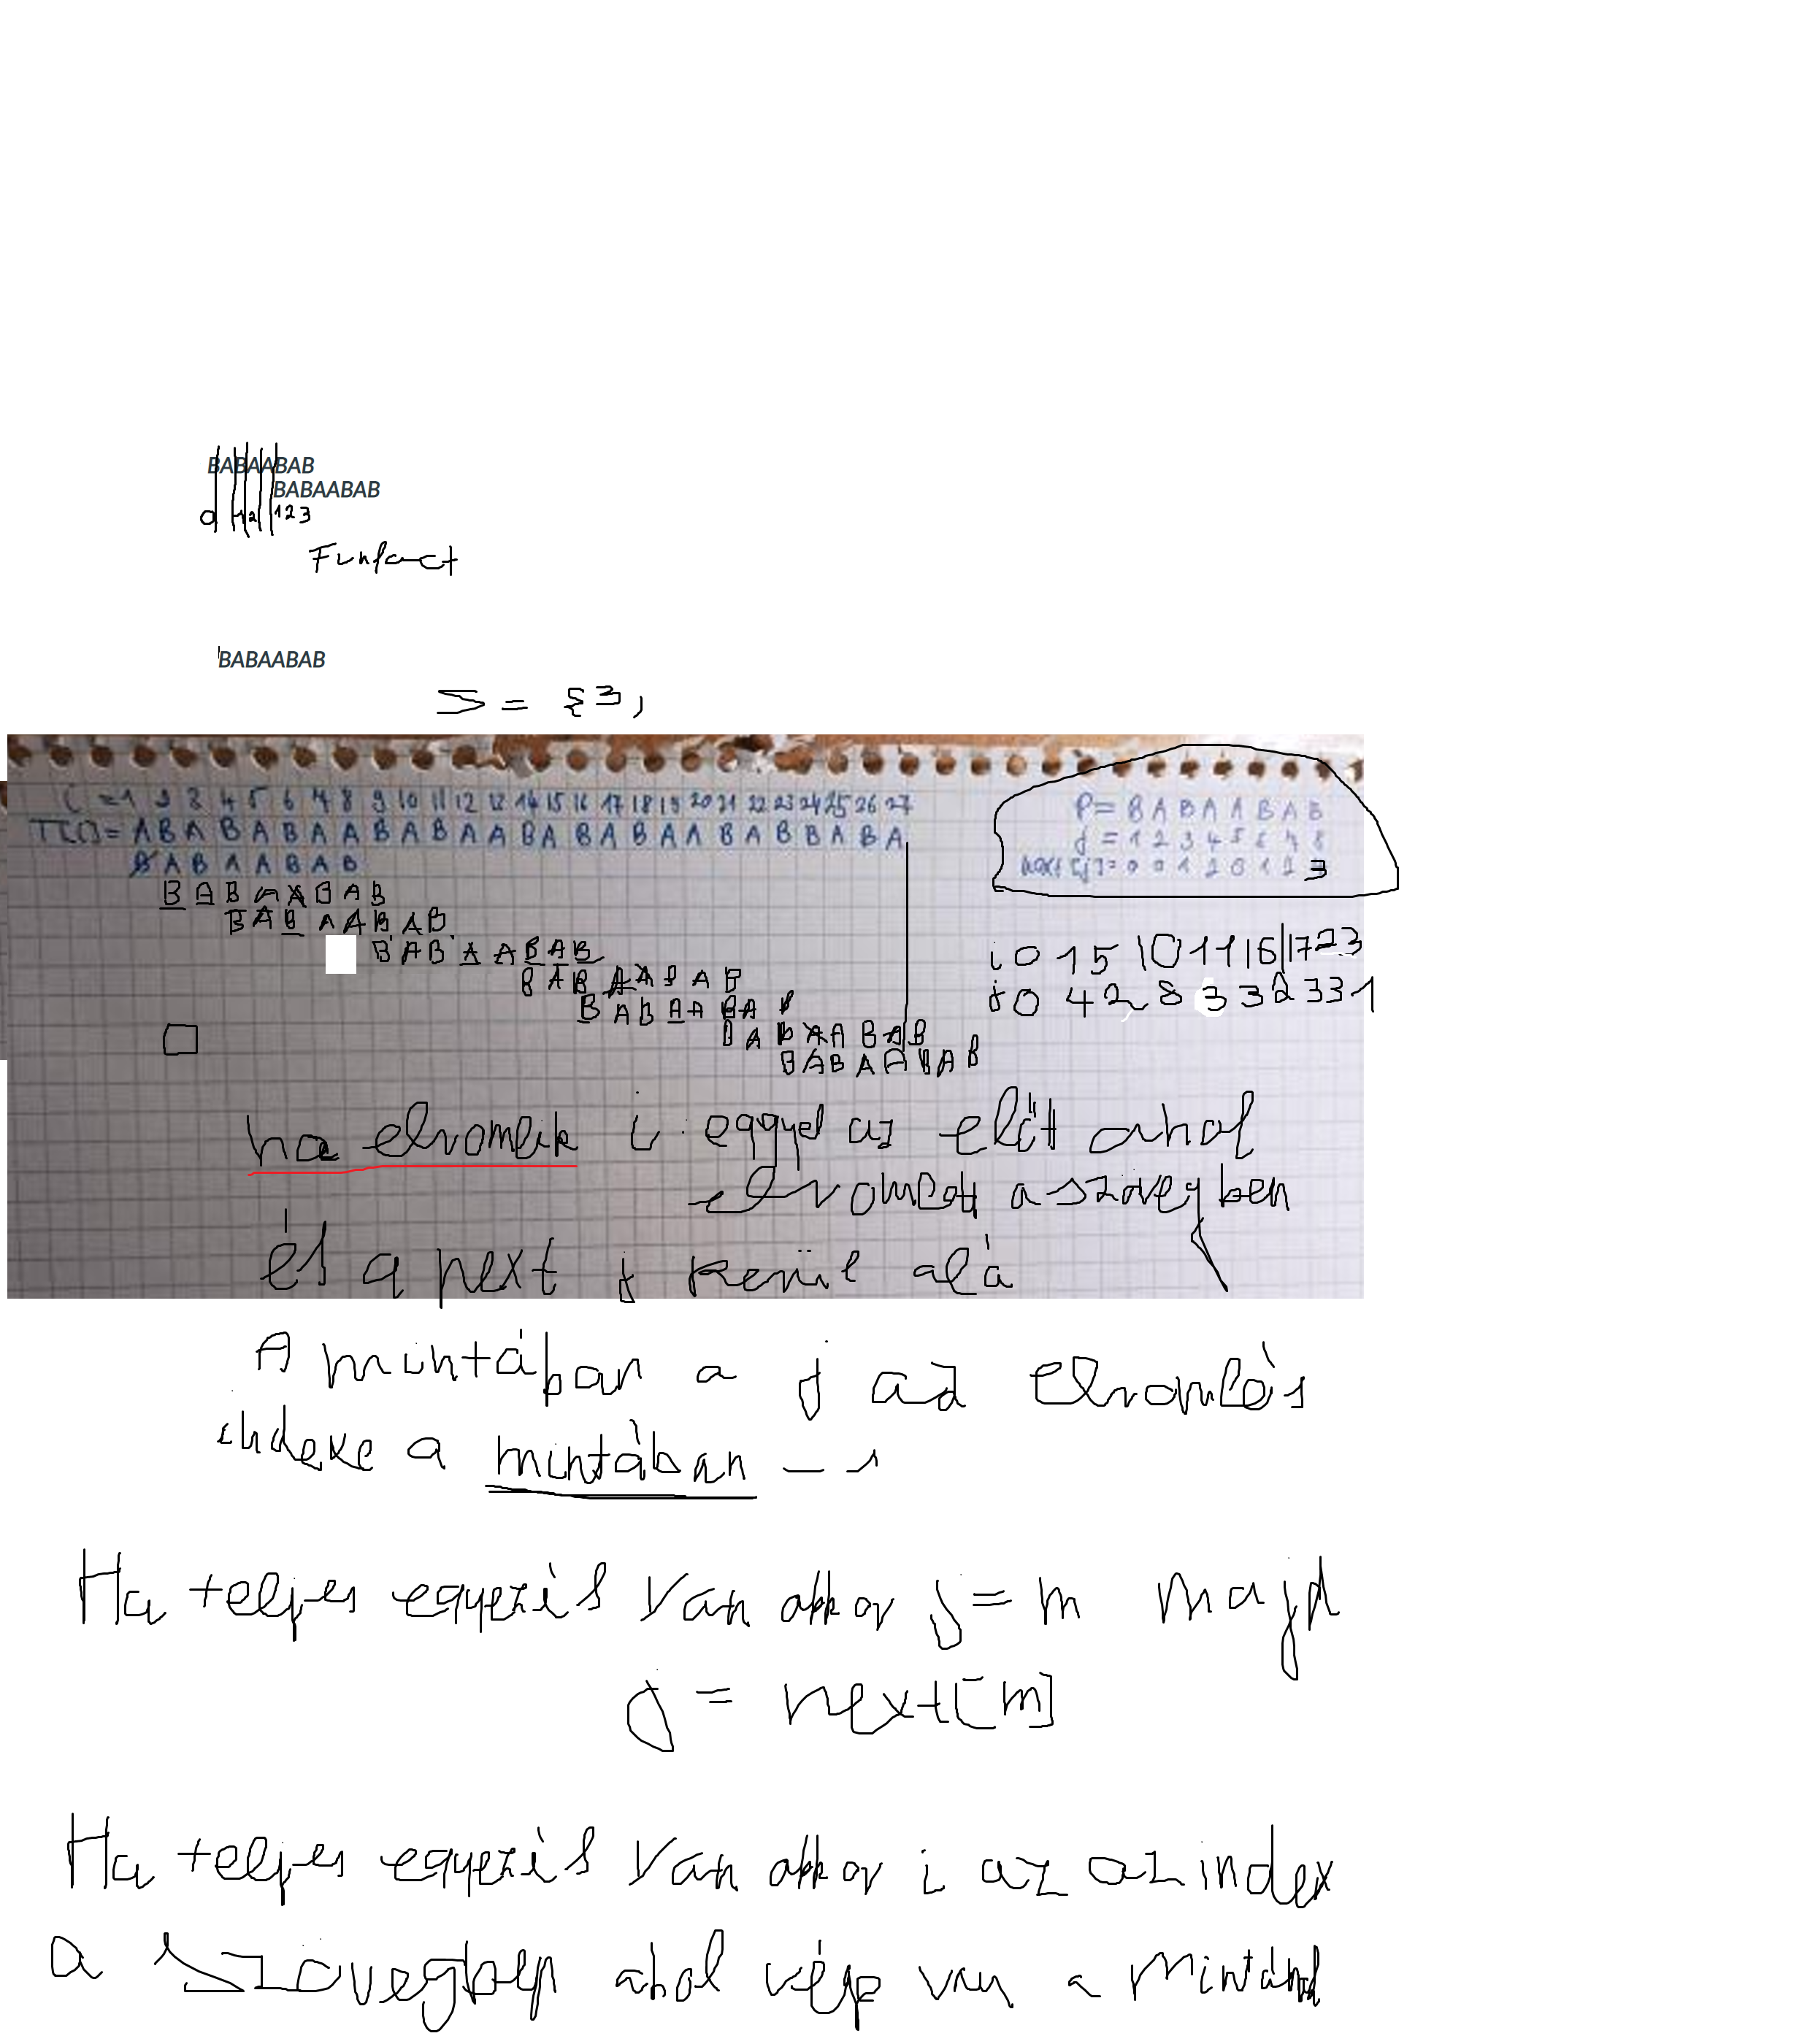 BABAABAB
BABAABAB
0 1 2 1 2 3
Funfact
BABAABAB
S = {3,
i = 1 2 3 4 5 6 7 8 9 10 11 12 13 14 15 16 17 18 19 20 21 22 23 24 25 26 27
T[i] = A B A B A B A A B A B A A B A B A B A A B A B B A B A
P = B A B A A B A B
j = 1 2 3 4 5 6 7 8
next[j] = 0 0 1 2 0 1 2 3
B A B A A B A B
B A B A A B A B
B A B A A B A B
B A B A A B A B
B A B A A B A B
B A B A A B A
B A B A A B A B
B A B A A B A B
i 0 1 5 10 11 16 17 23
j 0 4 2 8 3 3 2 3 3 1
ha elromlik i eggyel az előtt ahol
elromlott a szövegben
és a next j kerül alá
A mintában a j az elromlás
indexe a mintában - 1
Ha teljes egyezés van akkor j = m majd
j = next[m]
Ha teljes egyezés van akkor i az az index
a szövegben ahol vége van a mintának